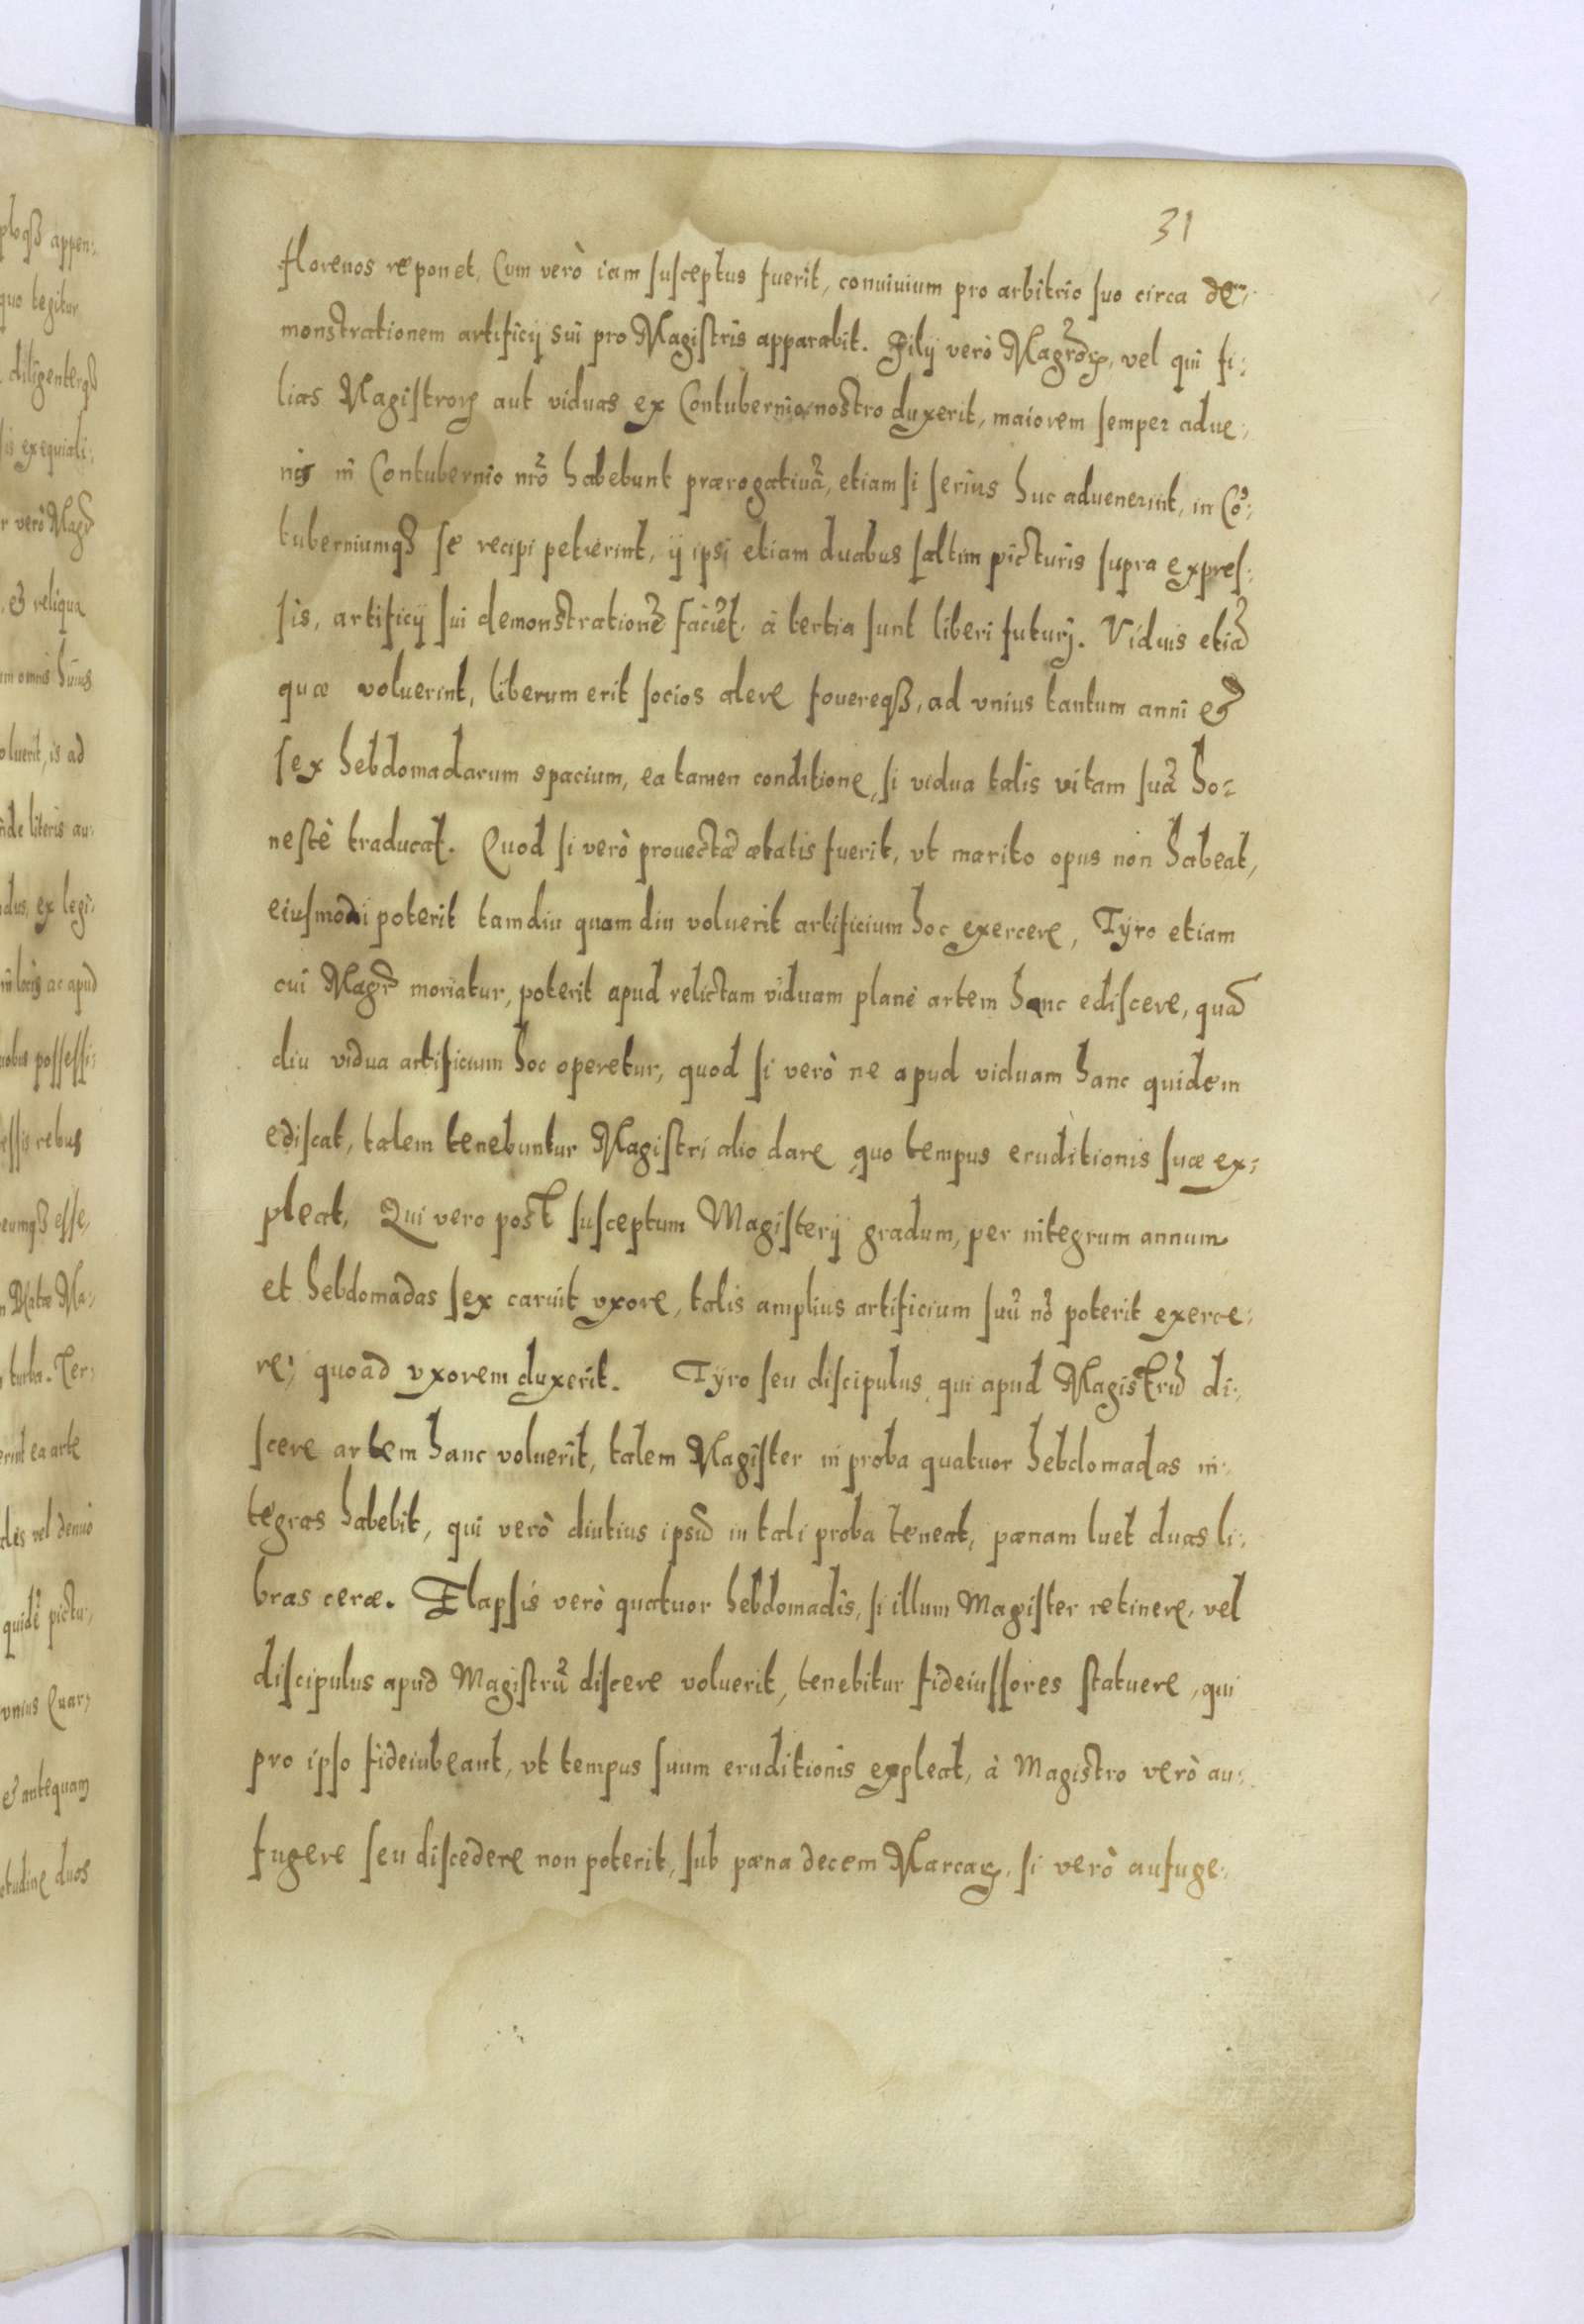 31
florenos reponet, Cum verò iam susceptus fuerit, conuiuium pro arbitrio suo circa de⸗
monstrationem artificij sui pro Magistris apparabit. Filij verò Magrōꝝ, vel qui fi⸗
lias Magistroꝝ aut viduas ex Contubernio nostro duxerit, maiorem semper adue⸗
nis in Contubernio nrō habebunt prærogatiuā, etiam si serius huc aduenerint, in Cō⸗
tuberniumqꝫ se recipi petierint, ij ipsi etiam duabus saltim picturis supra expres⸗
sis, artificij sui demonstrationē faciēt, à tertia sunt liberi futurj. Viduis etiā
quæ voluerint, liberum erit socios alere fouereqꝫ, ad vnius tantum anni &
sex hebdomadarum spacium, ea tamen conditione, si vidua talis vitam suā ho⸗
nestè traducat. Quod si verò prouectæ ætatis fuerit, vt marito opus non habeat,
eiusmodi poterit tamdiu quamdiu voluerit artificium hoc exercere, Tÿro etiam
cui Magr̄ moriatur, poterit apud relictam viduam planè artem hanc ediscere, quā
diu vidua artificium hoc operetur, quod si verò ne apud viduam hanc quidem
ediscat, talem tenebuntur Magistri alio dare quo tempus eruditionis suæ ex⸗
pleat, Qui vero post susceptum Magisterij gradum, per integrum annum
et hebdomadas sex caruit vxore, talis amplius artificium suū nō poterit exerce⸗
re, quoad vxorem duxerit. Tÿro seu discipulus qui apud Magistrū di⸗
scere artem hanc voluerit, talem Magister in proba quatuor hebdomadas in⸗
tegras habebit, qui verò diutius ipsū in tali proba teneat, pænam luet duas li⸗
bras ceræ. Elapsis verò quatuor hebdomadis, si illum Magister retinere, vel
discipulus apud Magistrū discere voluerit, tenebitur fideiussores statuere, qui
pro ipso fideiubeant, vt tempus suum eruditionis expleat, à Magistro verò au⸗
fugere seu discedere non poterit, sub pæna decem Marcaꝝ, si verò aufuge⸗